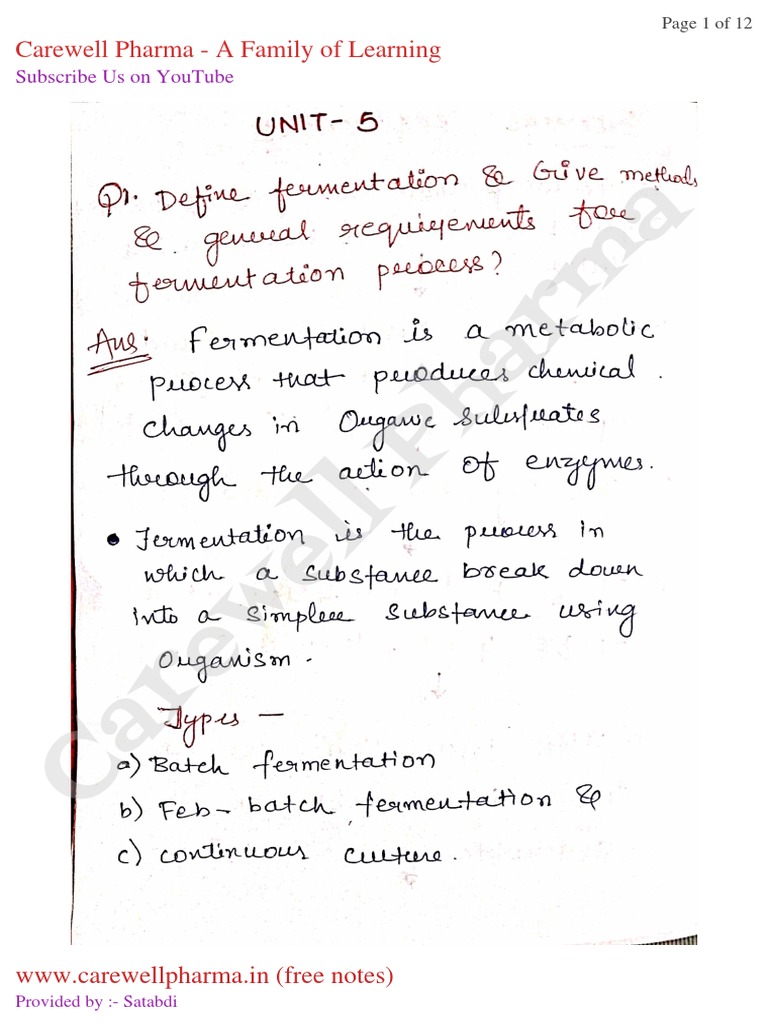 Page 1 of 12
Carewell Pharma - A Family of Learning
Subscribe Us on YouTube
UNIT- 5
Q1. Define fermentation & Give methods
& general requirements for
fermentation process?
Ans. Fermentation is a metabolic
process that produces chemical
changes in Organic Substrates
through the action of enzymes.
• Fermentation is the process in
which a substance break down
into a simpler substance using
Organism.
Types —
a) Batch fermentation
b) Feb- batch fermentation &
c) continuous culture.
Carewell Pharma
www.carewellpharma.in (free notes)
Provided by :- Satabdi